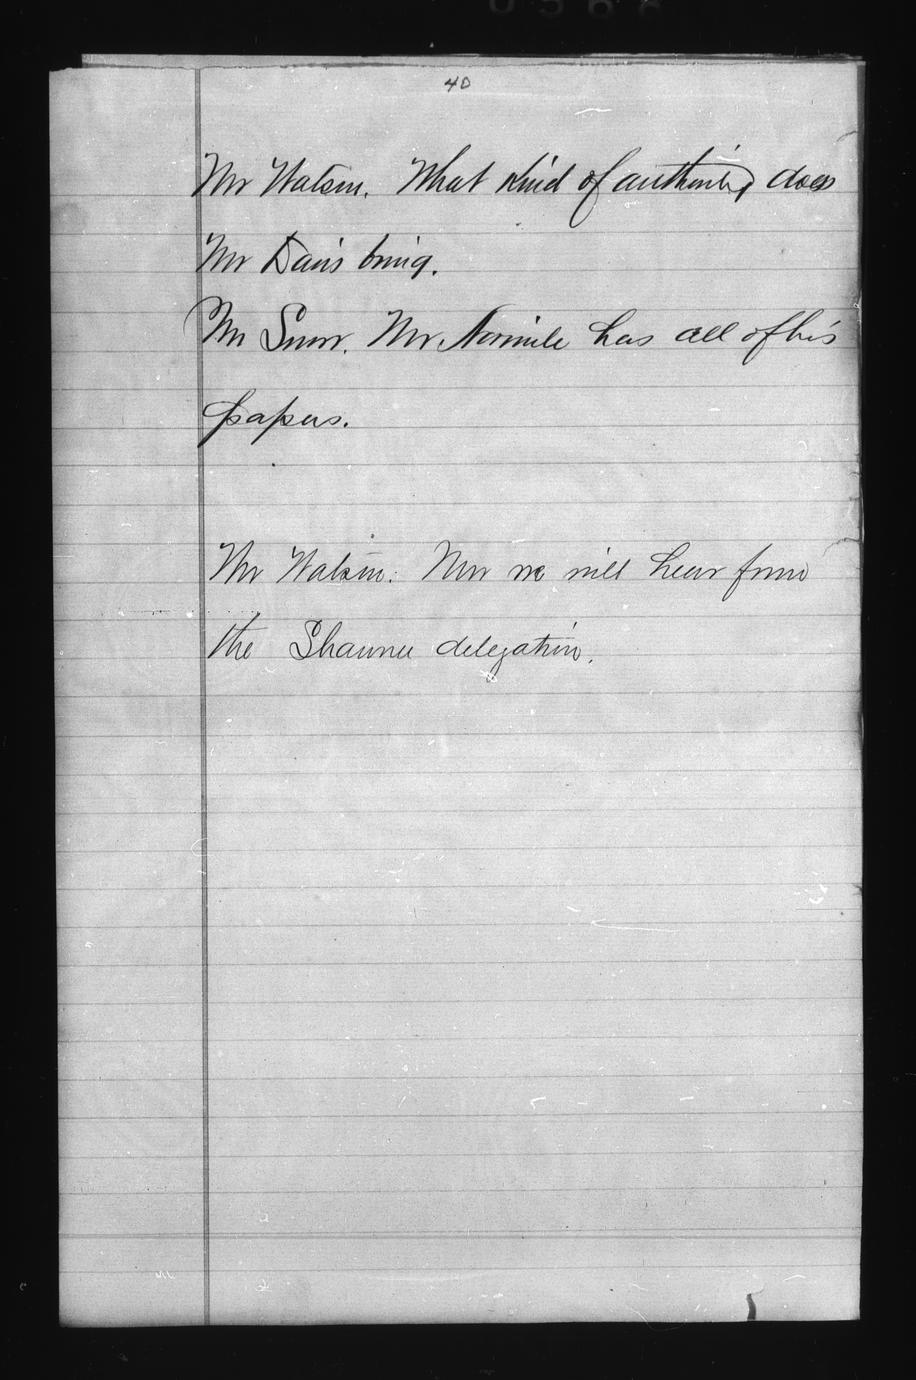 40
Mr Watson. What kind of authority does
Mr Davis bring.
Mr Snow. Mr. Normile has all of his
papers.
Mr Watson. Now we will hear from
the Shawnee delegation.